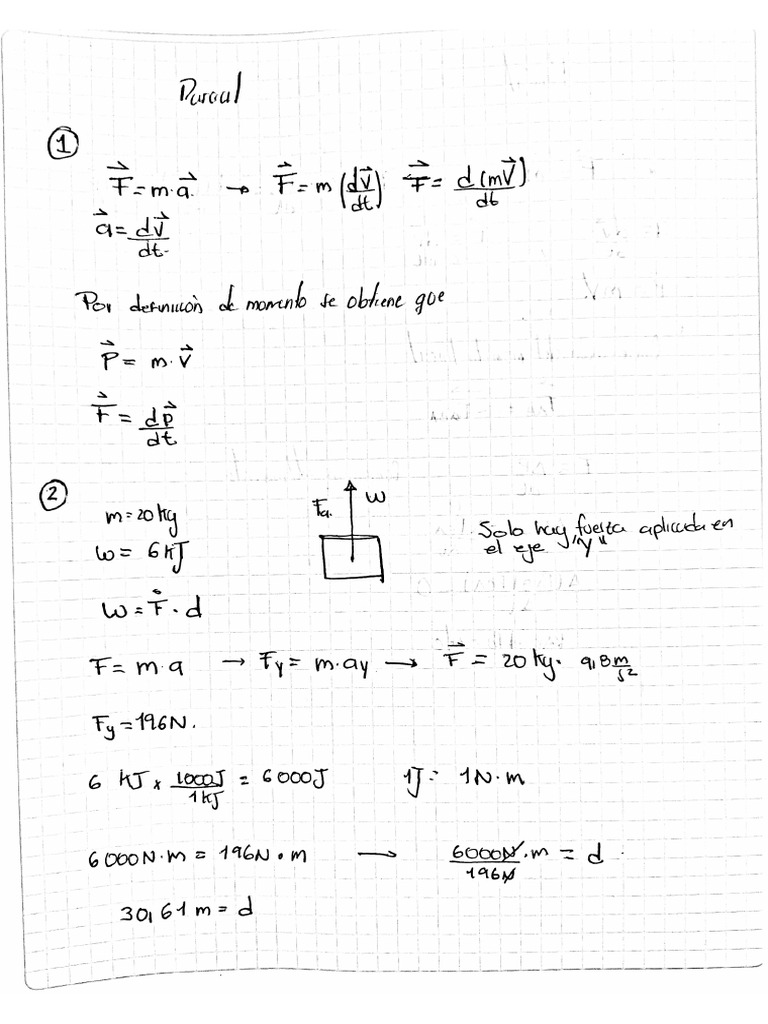 Parcial
①
F⃗ = m·a⃗. → F⃗ = m (dv⃗/dt) F⃗ = d(mv⃗)/dt
a⃗ = dv⃗/dt
Por definición de momento se obtiene que
P⃗ = m·v⃗
F⃗ = dp⃗/dt
②
m = 20 kg
W = 6 kJ
Fa. W
Solo hay fuerza aplicada en
el eje "y"
W = F⃗ · d
F = m·a → Fy = m·ay → F⃗ = 20 kg · 9,8 m/s²
Fy = 196N.
6 kJ x 1000J/1kJ = 6000J 1J = 1N·m
6000N·m = 196N·m → 6000N·m/196N = d
30,61 m = d